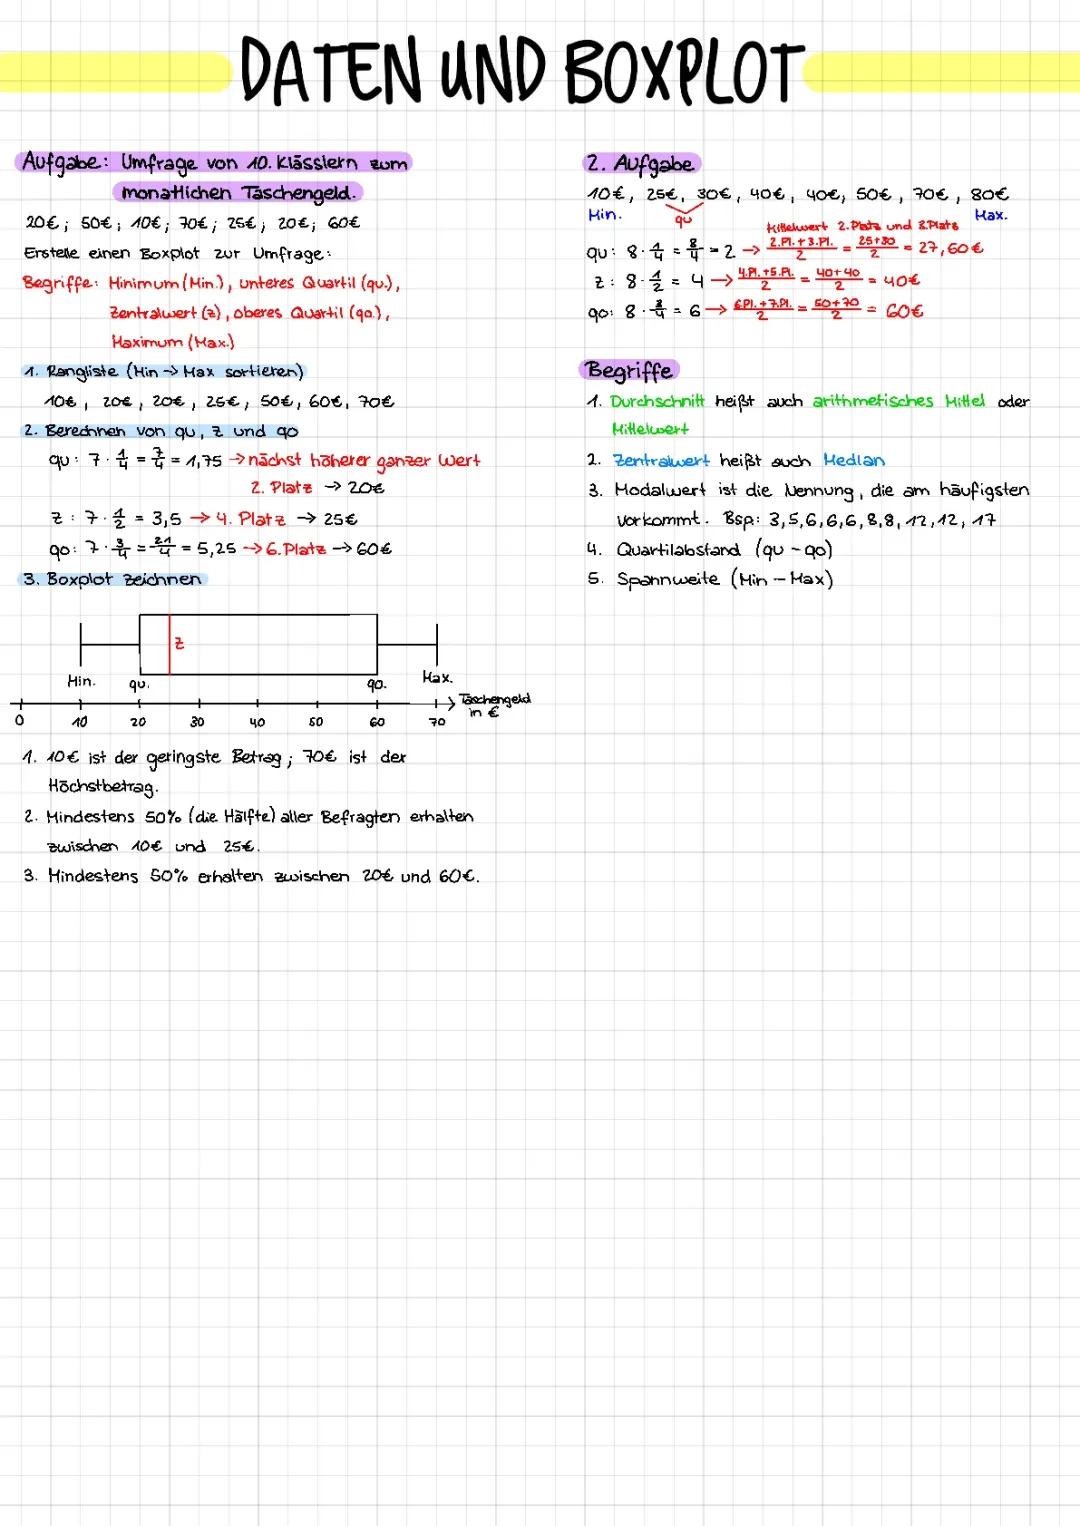 DATEN UND BOXPLOT
Aufgabe: Umfrage von 10. Klässlern zum
monatlichen Taschengeld.
20€; 50€; 10€; 70€; 25€; 20€; 60€
Erstelle einen Boxplot zur Umfrage:
Begriffe: Minimum (Min.), unteres Quartil (qu.),
Zentralwert (z), oberes Quartil (qo.),
Maximum (Max.)
1. Rangliste (Min → Max sortieren)
10€, 20€, 20€, 25€, 50€, 60€, 70€
2. Berechnen von qu, z und qo
qu: 7 · 1/4 = 7/4 = 1,75 → nächst höherer ganzer Wert
2. Platz → 20€
z: 7 · 1/2 = 3,5 → 4. Platz → 25€
qo: 7 · 3/4 = 21/4 = 5,25 → 6. Platz → 60€
3. Boxplot zeichnen
z
Min. qu. qo. Max.
Taschengeld
in €
0 10 20 30 40 50 60 70
1. 10€ ist der geringste Betrag; 70€ ist der
Höchstbetrag.
2. Mindestens 50% (die Hälfte) aller Befragten erhalten
zwischen 10€ und 25€.
3. Mindestens 50% erhalten zwischen 20€ und 60€.
2. Aufgabe
10€, 25€, 30€, 40€, 40€, 50€, 70€, 80€
Min. qu Max.
Mittelwert 2.Platz und 3.Platz
qu: 8 · 1/4 = 8/4 = 2 → 2.Pl.+3.Pl./2 = 25+30/2 = 27,60€
z: 8 · 1/2 = 4 → 4.Pl.+5.Pl./2 = 40+40/2 = 40€
qo: 8 · 3/4 = 6 → 6.Pl.+7.Pl./2 = 50+70/2 = 60€
Begriffe
1. Durchschnitt heißt auch arithmetisches Mittel oder
Mittelwert
2. Zentralwert heißt auch Median
3. Modalwert ist die Nennung, die am häufigsten
vorkommt. Bsp: 3,5,6,6,6,8,8,12,12,17
4. Quartilabstand (qu - qo)
5. Spannweite (Min - Max)